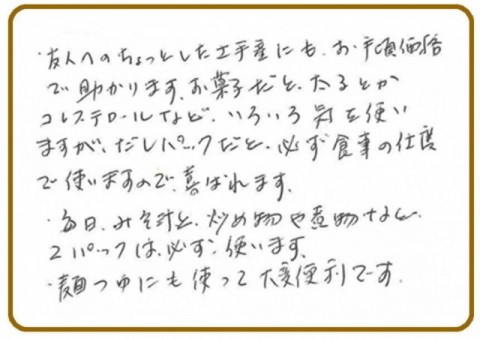 ・友人へのちょっとした土手産にも、お手頃価格
で助かります。お菓子だと、太るとか
コレステロールなど、いろいろ気を使い
ますが、だしパックだと、必ず食事の仕度
で使いますので、喜ばれます。
・毎日、みそ汁と、炒め物や煮物など、
2パックは、必ず、使います。
・麺つゆにも使って大変便利です。